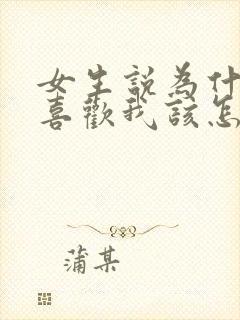 女生說為什
喜歡我該怎
蒲某